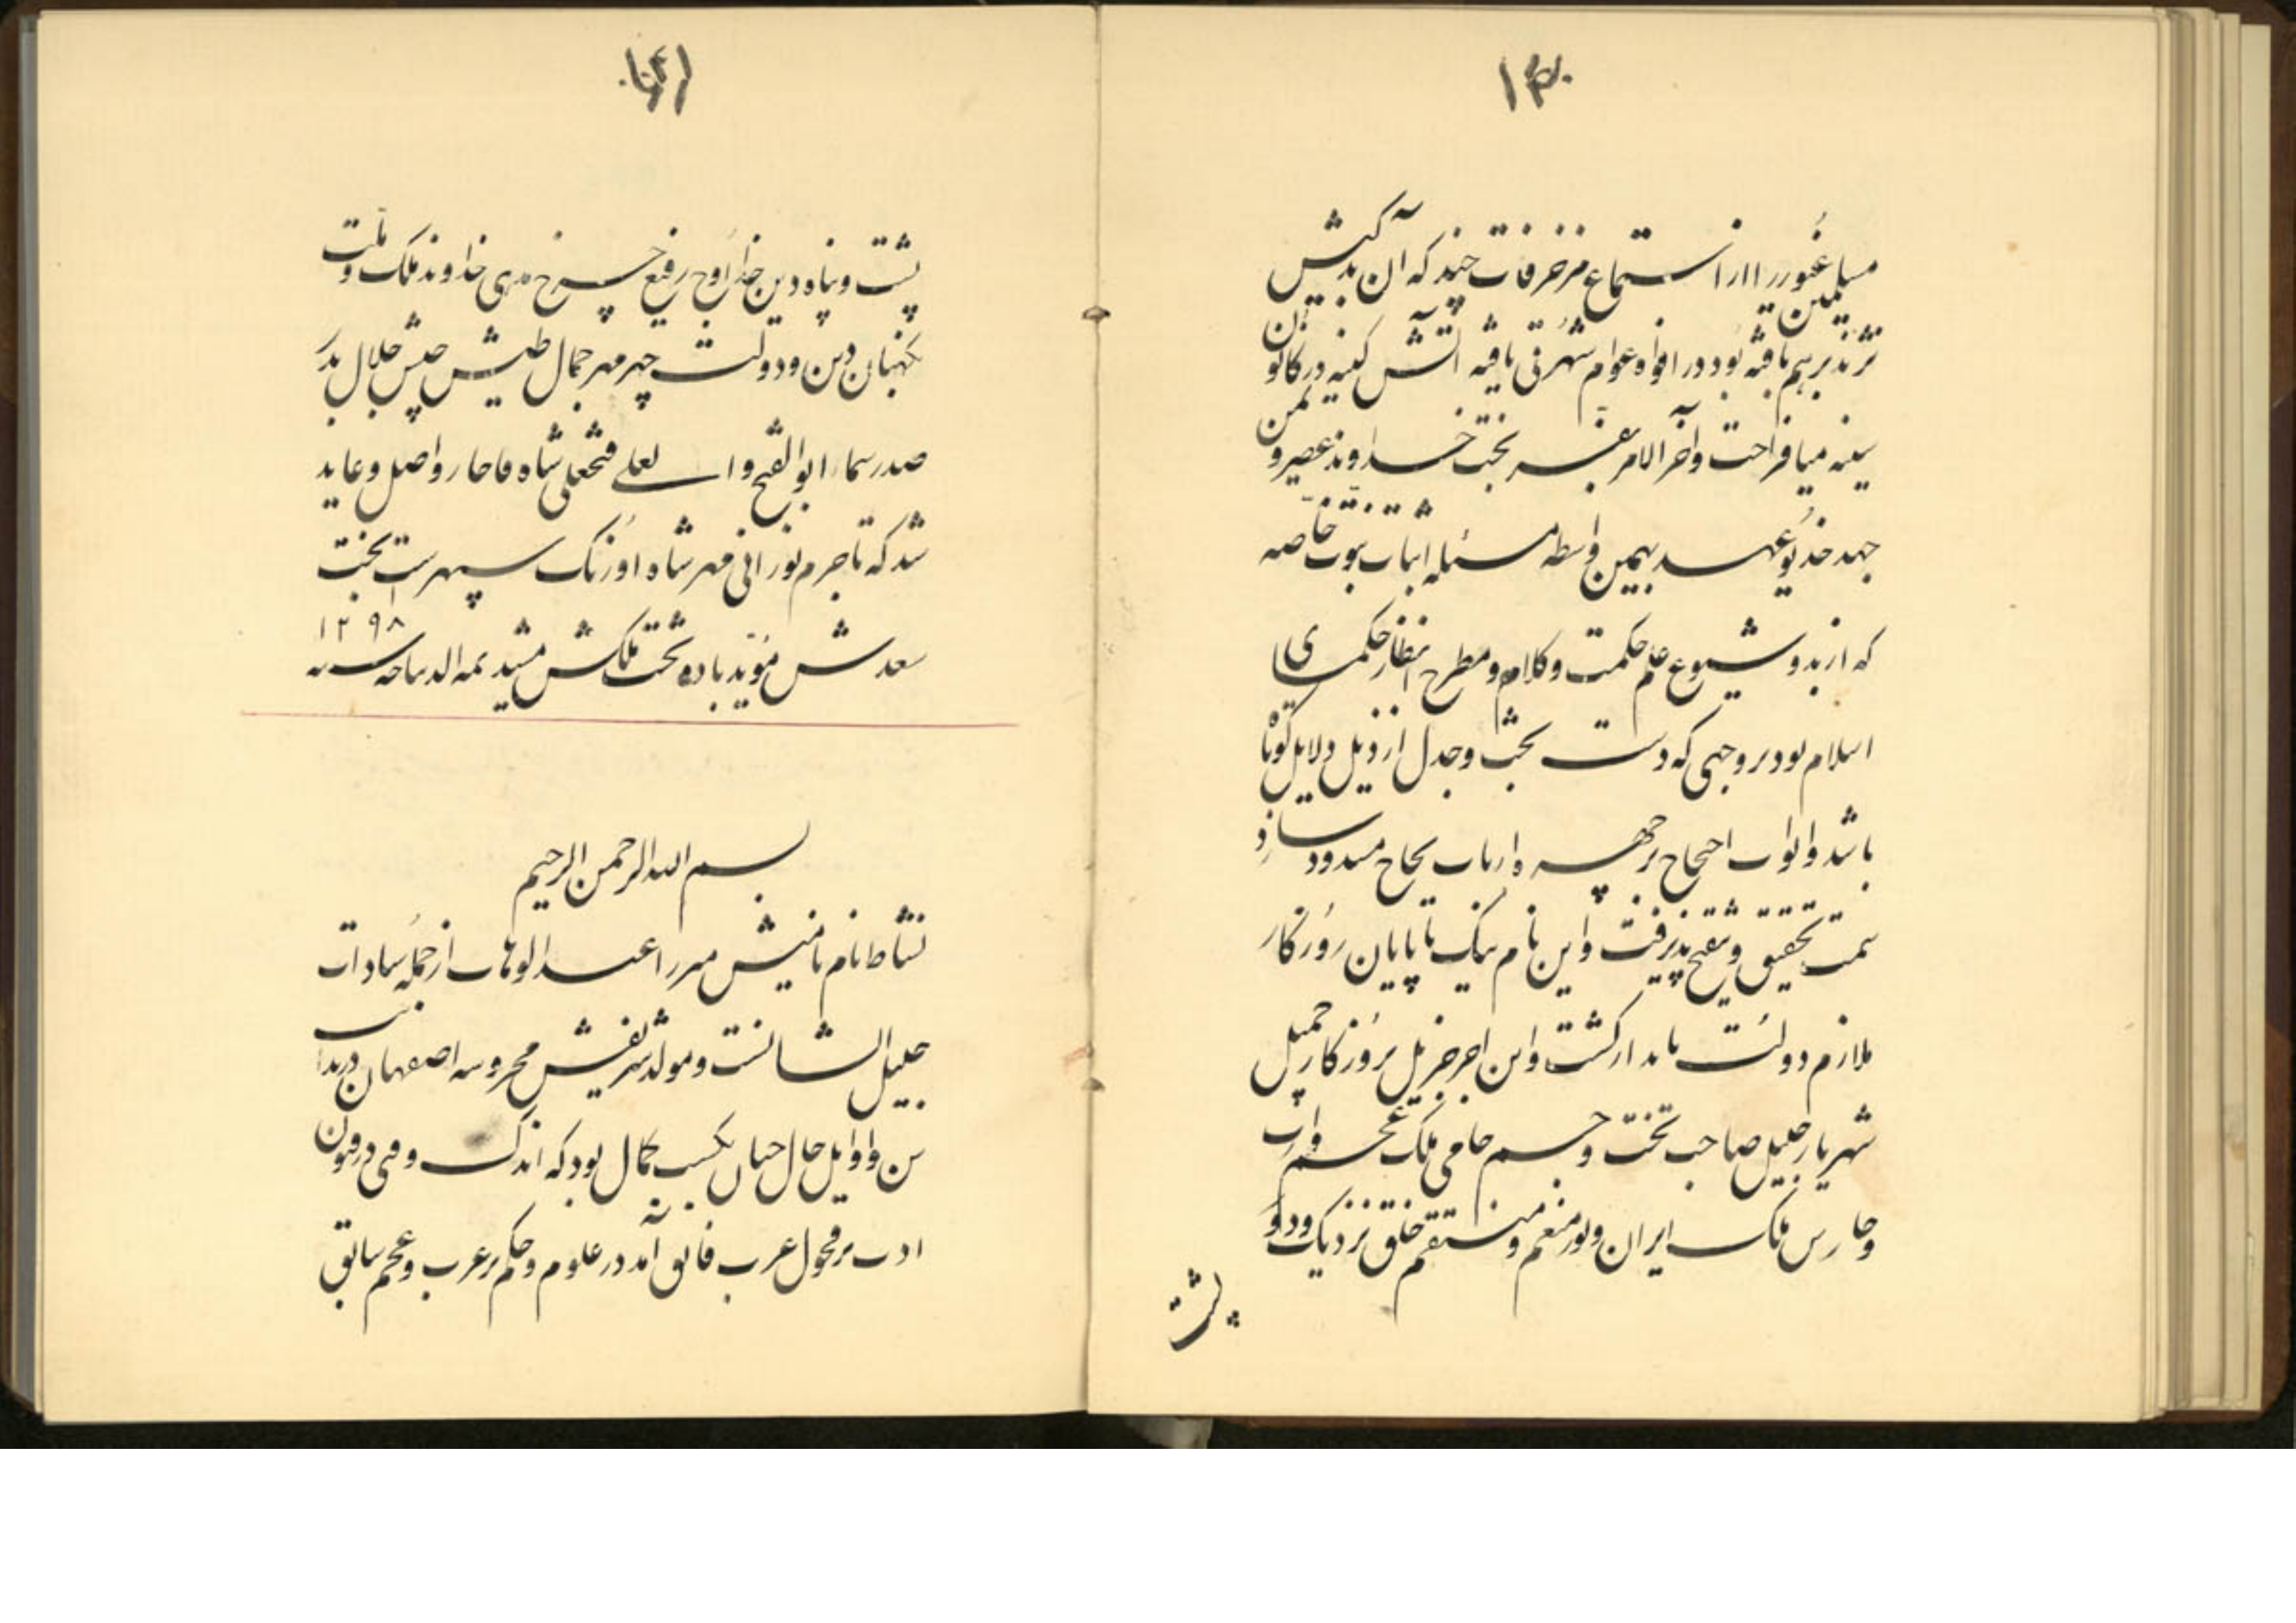 ۱۴۰
مسلمین غیور را از استماع مزخرفات چند که آن بدکیش
ترند بر هم بافته بود در افواه عوام شهرتی یافته آتش کینه در کانون
سینه میافراخت و آخر الامر بخت خداوند عصر و یمن
جهد خدیو عهد بیمین واسطه مسئله اثبات نبوت خاصه
که از بدو شیوع علم حکمت و کلام و مطرح انظار حکمای
اسلام بود بر وجهی که دست بحث و جدل از ذیل دلایل کوتاه
باشد و ابواب احتجاج بر چهره ارباب لجاج مسدود سازد
سمت تحقیق و تنقیح پذیرفت و این نام نیک تا پایان روزگار
ملازم دولت پایدار گشت و این اجر جزیل بروزگار جمیل
شهریار جلیل صاحب تخت و جسم حامی ملک عجم وارث
و حارس ملک ایران و تور منعم و منتقم خلق نزدیک و دور
پشت
۱۴۱
پشت و پناه دین خدا اوج رفیع چرخ هدی خداوند ملک و ملت
نگهبان دین و دولت چهر مهر جمال طیش جیش جلال بدر
صدر سما ابو الفتح و العلی فتحعلی شاه قاجار واصل و عاید
شد که تا جرم نورانی مهر شاه اورنگ سپهرست بخت
سعدش مؤید باد و تخت ملکش مشید تمه الدیباجه سنه ۱۲۹۸
بسم الله الرحمن الرحیم
نشاط نام نامیش میرزا عبدالوهاب از جمله سادات
جلیل الشانست و مولد شریفش محروسه اصفهان در بدایت
سن و اوایل حال چنان بکسب کمال بود که اندک وقتی در فنون
ادب بر فحول عرب فائق آمد در علوم و حکم بر عرب و عجم سابق